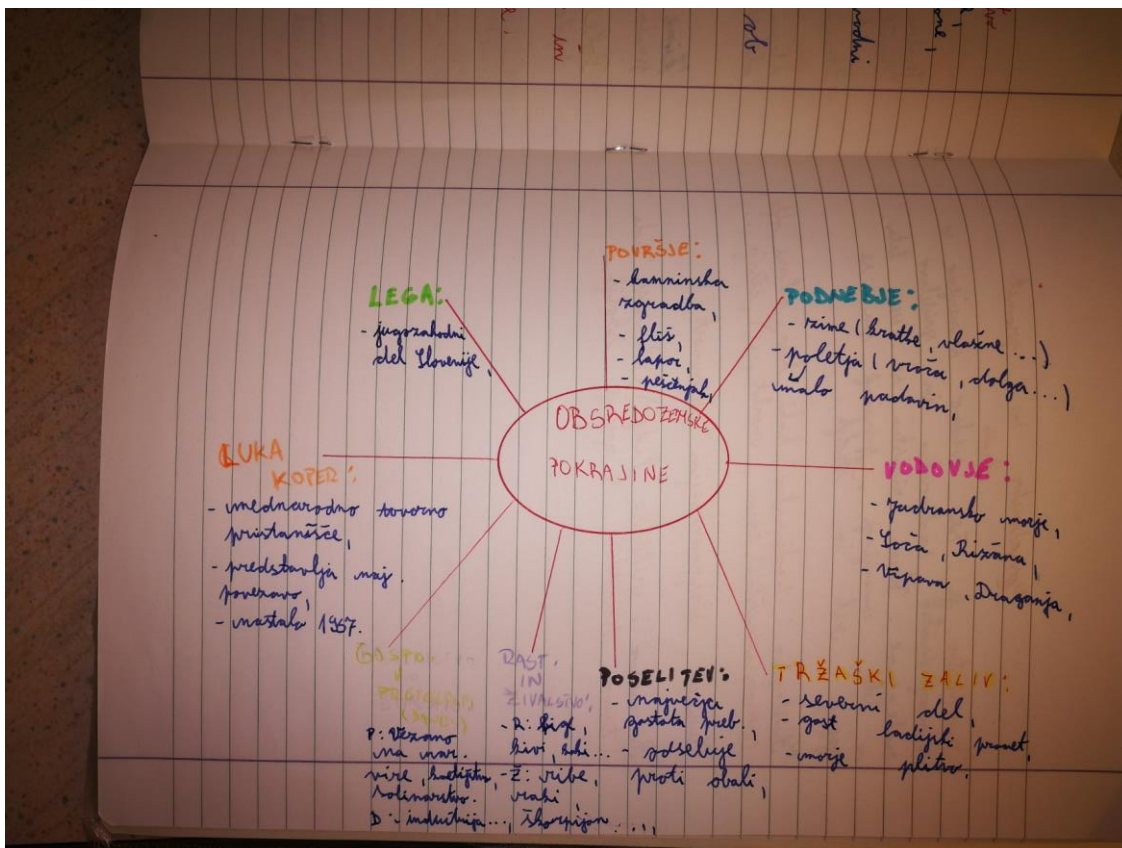 OBSREDOZEMSKE
POKRAJINE
LEGA:
- jugozahodni
del Slovenije,
POVRŠJE:
- kamninska
zgradba,
- fliš,
- lapor,
- peščenjak,
PODNEBJE:
- zime (kratke, vlažne...)
- poletja (vroča, dolga...)
malo padavin,
VODOVJE:
- Jadransko morje,
- Soča, Rižana,
- Vipava, Dragonja,
TRŽAŠKI ZALIV:
- severni del,
- gost ladijski promet,
- morje plitvo.
POSELITEV:
- največja
gostota preb.,
proti obali,
RAST.
IN
ŽIVALSTVO:
- Ž: ribe,
škorpijon...,
GOSPO.
P: Vezano
na nar.
vire,
solinarstvo.
D: - industrija...,
LUKA
KOPER:
- mednarodno tovorno
pristanišče,
- predstavlja naj.
povezavo,
- nastala 1957.
in
ob